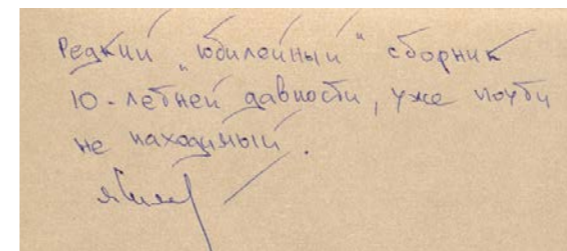 Редкий „юбилейный" сборник
10-летней давности, уже почти
не находимый.